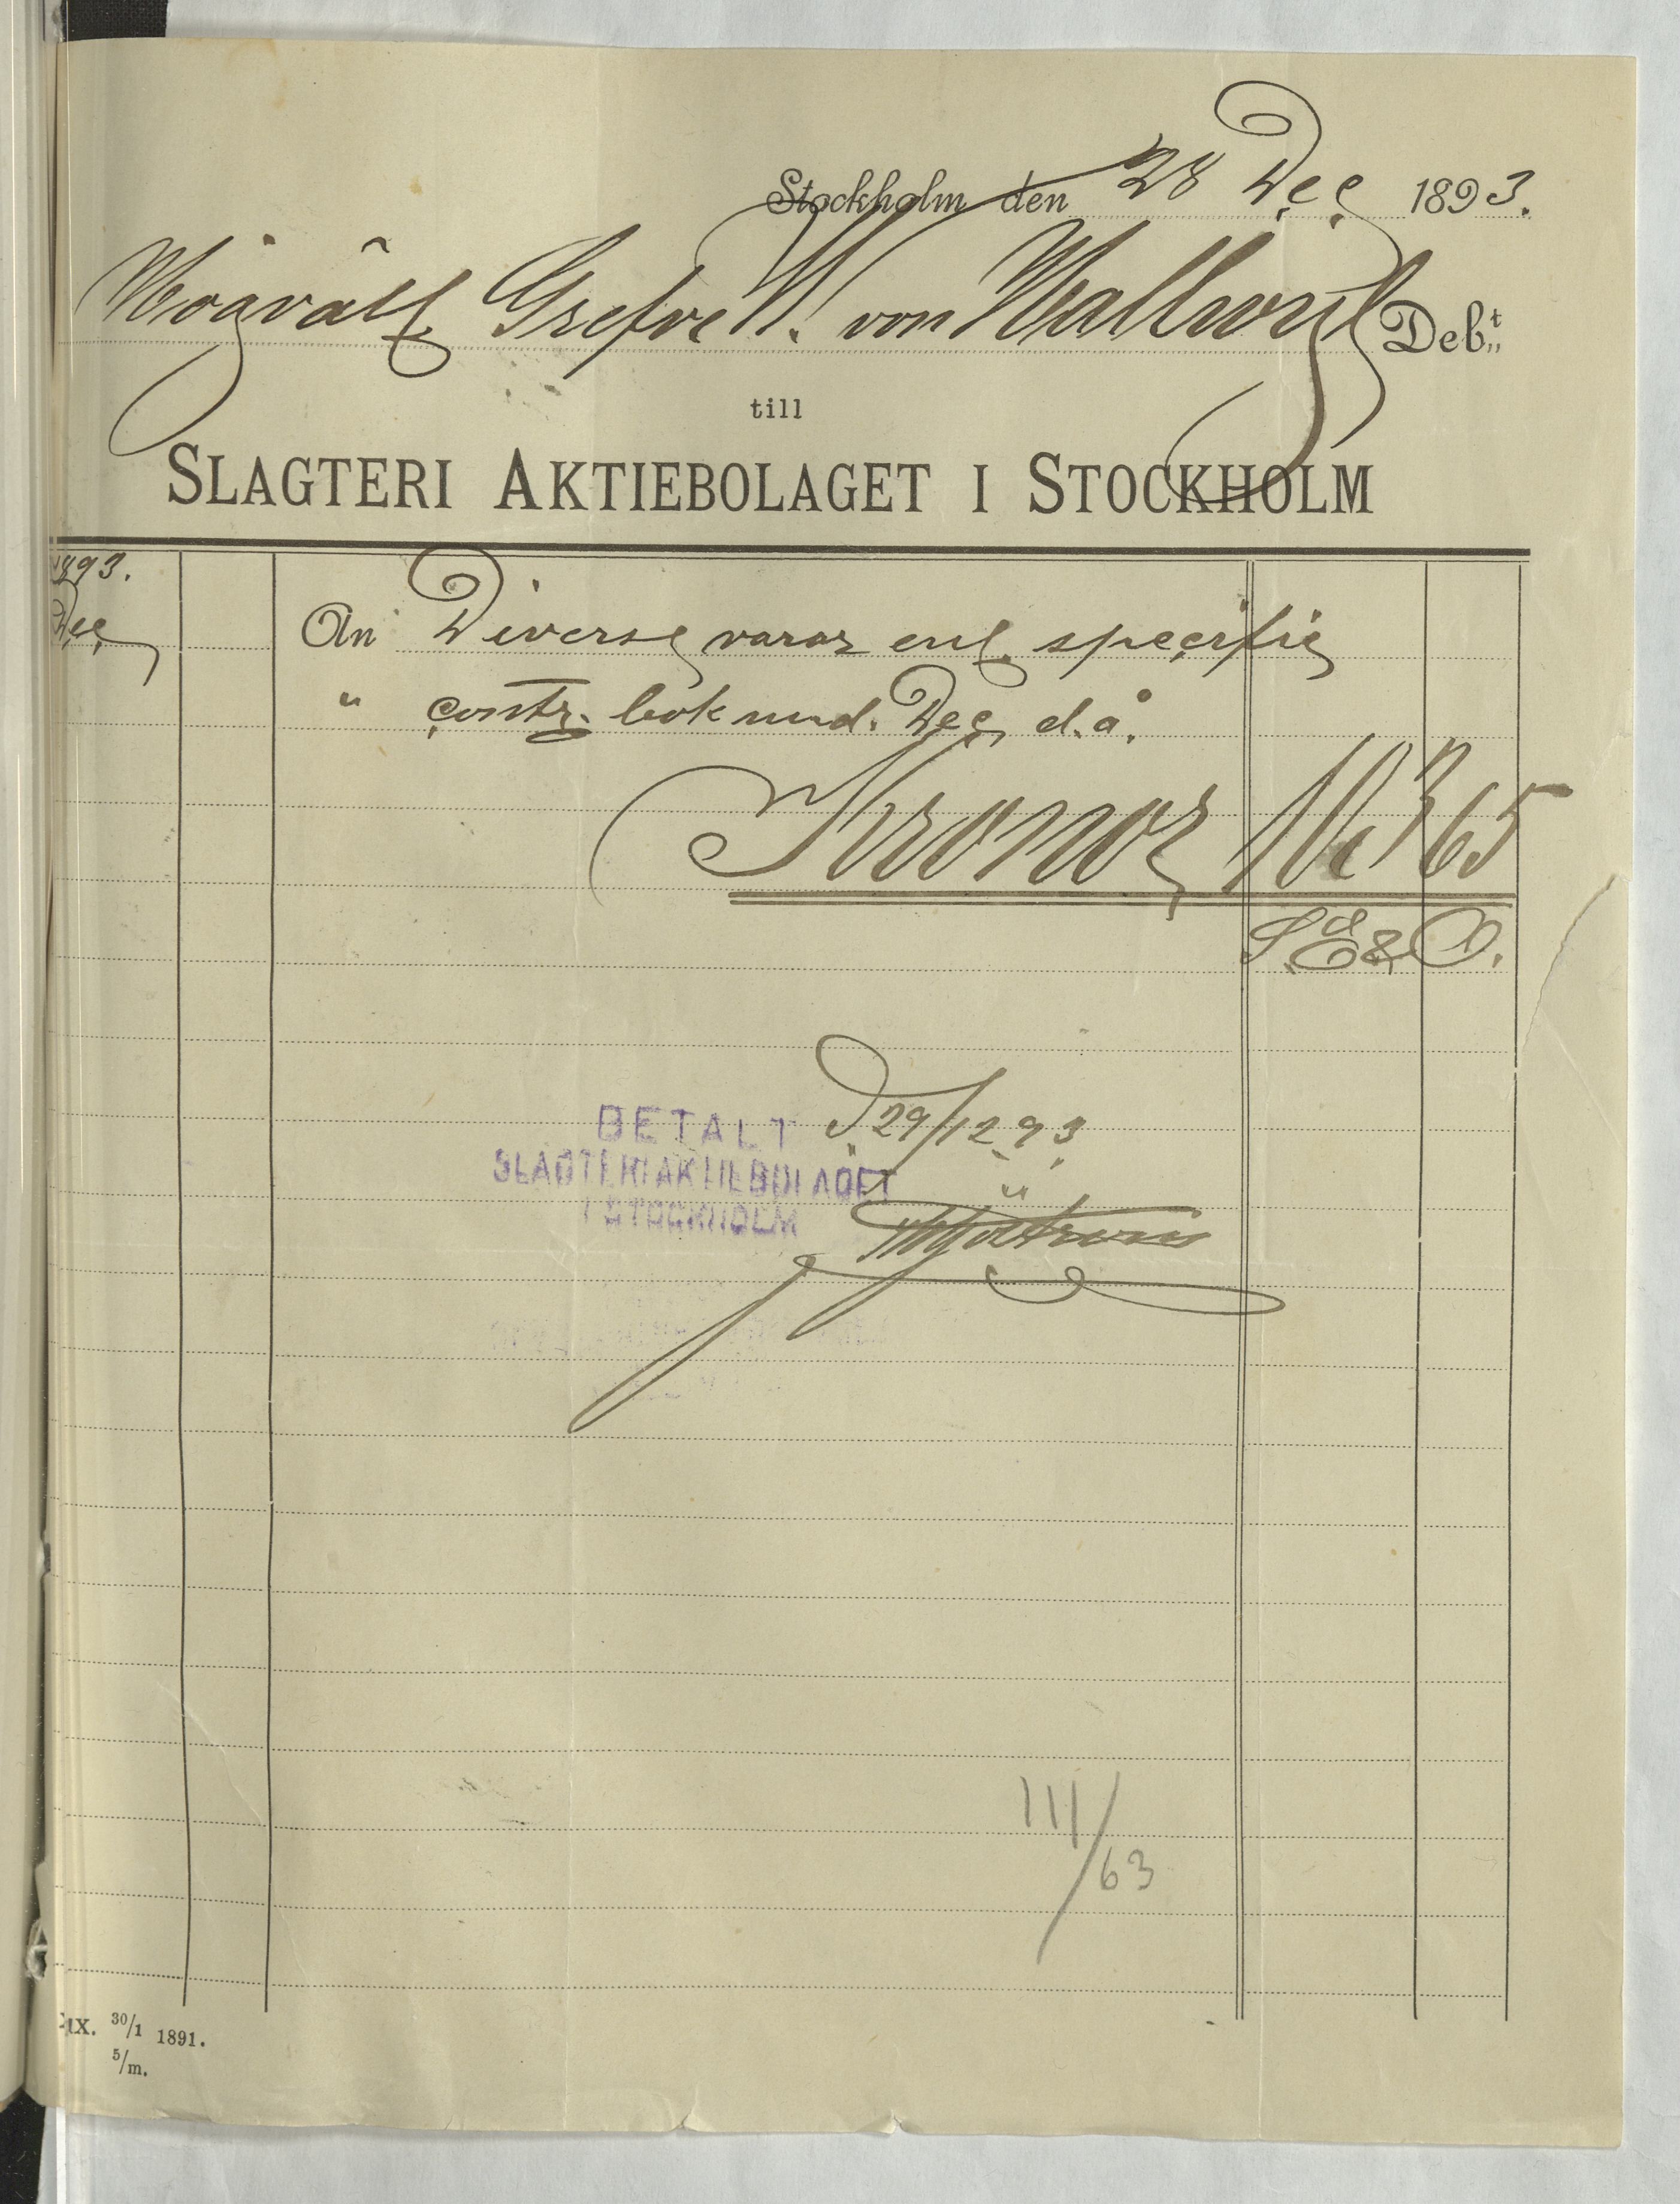 Stockholm den 28 Dec 1893.
Högväl. Grefve W. von Hallwyl Deb:t
till
SLAGTERI AKTIEBOLAGET I STOCKHOLM
1893.
Dec. An Diverse varor enl. specific
" contr. bok und. Dec d.å.
Kronor 65
S. E & O.
BETALT d 29/12 93
SLAGTERIAKTIEBOLAGET "
I STOCKHOLM
111/63
30/1 1891.
5/m.